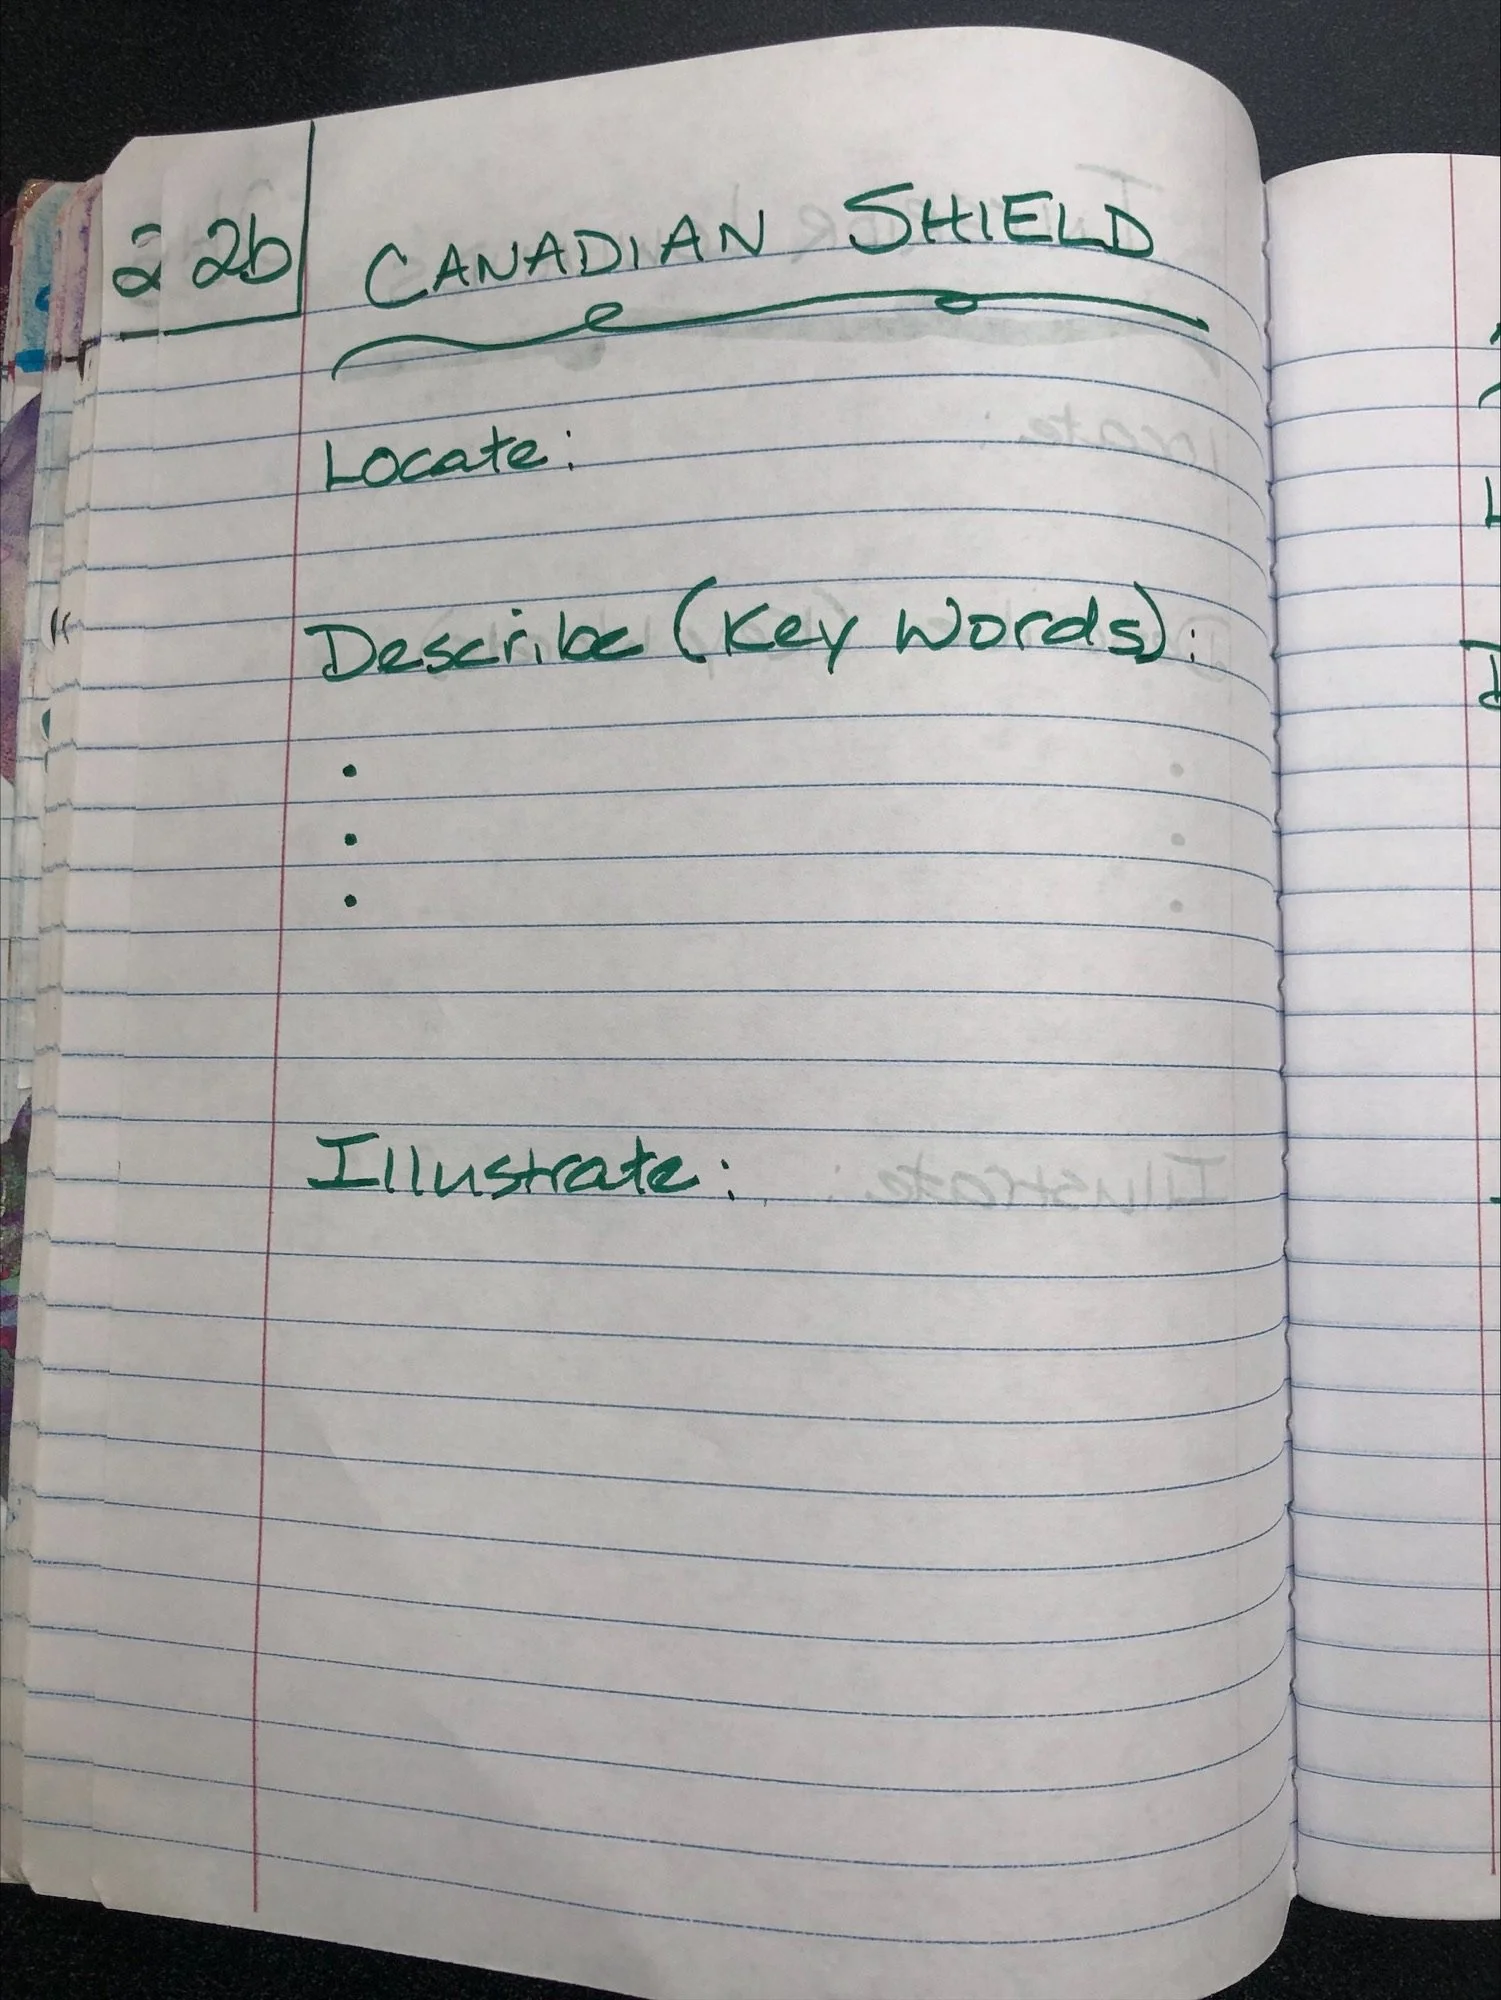 22b
CANADIAN SHIELD
Locate:
Describe (Key Words):
•
•
•
Illustrate: